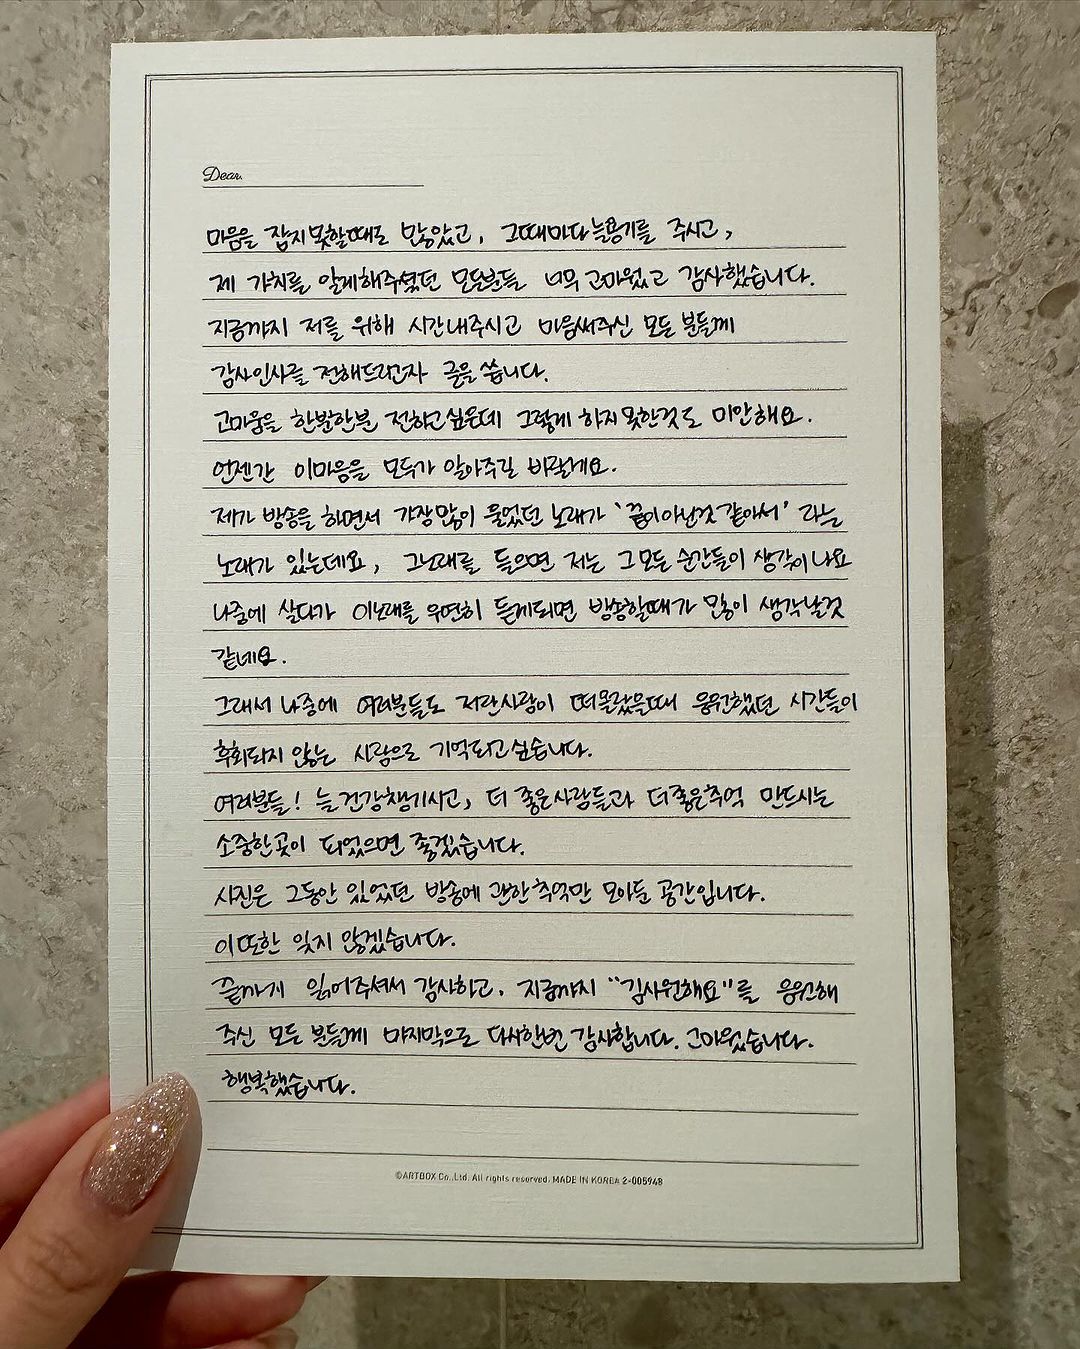 Dear.
마음을 잡지 못할때도 많았고, 그때마다 늘용기를 주시고,
제 가치를 알게해주셨던 모든분들 너무 고마웠고 감사했습니다.
지금까지 저를 위해 시간내주시고 마음써주신 모든 분들께
감사인사를 전해드리고자 글을 씁니다.
고마움을 한분한분 전하고싶은데 그렇게 하지 못한것도 미안해요.
언젠간 이마음을 모두가 알아주길 바랄게요.
제가 방송을 하면서 가장많이 들었던 노래가 '끝이아닌것같아서' 라는
노래가 있는데요, 그노래를 들으면 저는 그모든 순간들이 생각이나요
나중에 살다가 이노래를 우연히 듣게되면 방송할때가 많이 생각날것
같네요.
그래서 나중에 여러분들도 저란사람이 떠올랐을때 응원했던 시간들이
후회되지 않는 사람으로 기억되고싶습니다.
여러분들! 늘건강챙기시고, 더 좋은사람들과 더좋은추억 만드시는
소중한곳이 되었으면 좋겠습니다.
사진은 그동안 있었던 방송에 관한추억만 모아둔 공간입니다.
이또한 잊지 않겠습니다.
끝까지 읽어주셔서 감사하고. 지금까지 "김사원해요"를 응원해
주신 모든 분들께 마지막으로 다시한번 감사합니다. 고마웠습니다.
행복했습니다.
©ARTBOX Co.,Ltd. All rights reserved. MADE IN KOREA 2-005948